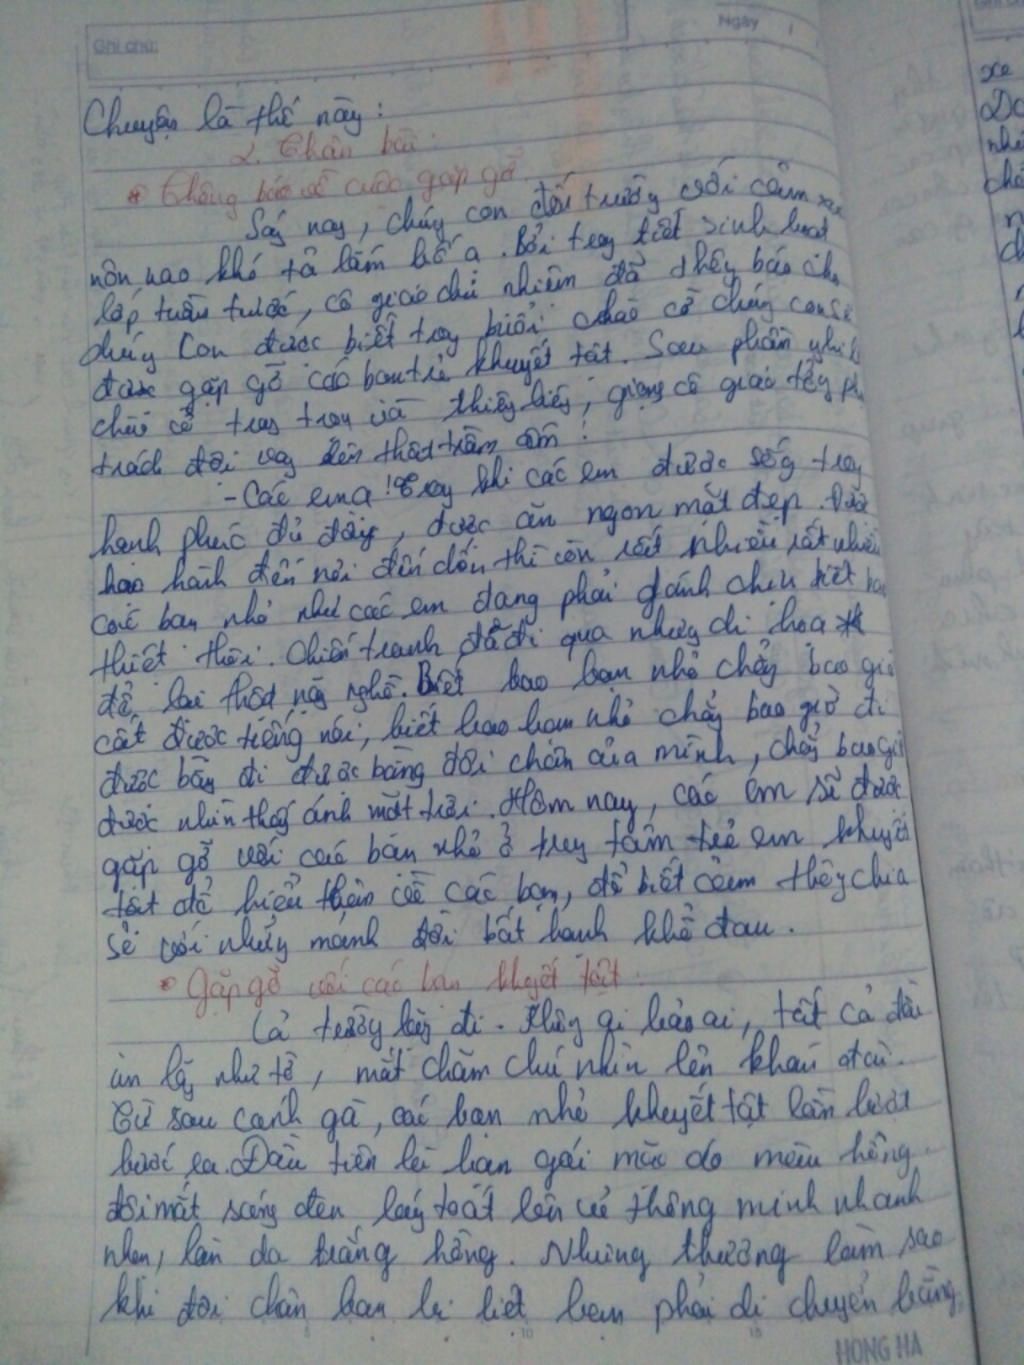 Ghi chú:
Ngày
Chuyện là thế này:
2. Thân bài
* Thông báo về cuộc gặp gỡ
Sáng nay, chúng con đến trường với cảm xúc
nôn nao khó tả lắm bố ạ. Bởi trong tiết sinh hoạt
lớp tuần trước, cô giáo chủ nhiệm đã thông báo cho
chúng con được biết trong buổi chào cờ chúng con sẽ
được gặp gỡ các bạn trẻ khuyết tật. Sau phần nghi lễ
chào cờ trang trọng và thiêng liêng, giọng cô giáo tổng phụ
trách đội vang lên thật trầm ấm:
- Các em ạ! Trong khi các em được sống trong
hạnh phúc đủ đầy, được ăn ngon mặc đẹp. Được
học hành đến nơi đến chốn thì còn rất nhiều rất nhiều
các bạn nhỏ như các em đang phải gánh chịu biết bao
thiệt thòi. Chiến tranh đã đi qua nhưng di hoạ
để lại thật nặng nghề. Biết bao bạn nhỏ chẳng bao giờ
cất được tiếng nói, biết bao bạn nhỏ chẳng bao giờ đi
được bằng đi được bằng đôi chân của mình, chẳng bao giờ
được nhìn thấy ánh mặt trời. Hôm nay, các em sẽ được
gặp gỡ với các bạn nhỏ ở trung tâm trẻ em khuyết
tật để hiểu thêm về các bạn, để biết cảm thông chia
sẻ với những mảnh đời bất hạnh khổ đau.
* Gặp gỡ với các bạn khuyết tật
Cả trường lặng đi. Không ai bảo ai, tất cả đều
im lặng như tờ, mắt chăm chú nhìn lên khán đài.
Từ sau cánh gà, các bạn nhỏ khuyết tật lần lượt
bước ra. Đầu tiên là bạn gái mặc áo màu hồng.
đôi mắt sáng đen láy toát lên vẻ thông minh nhanh
nhẹn, làn da trắng hồng. Nhưng thương làm sao
khi đôi chân bạn bị liệt bạn phải di chuyển bằng
5 10 15
HONG HA
xe
nhỏ